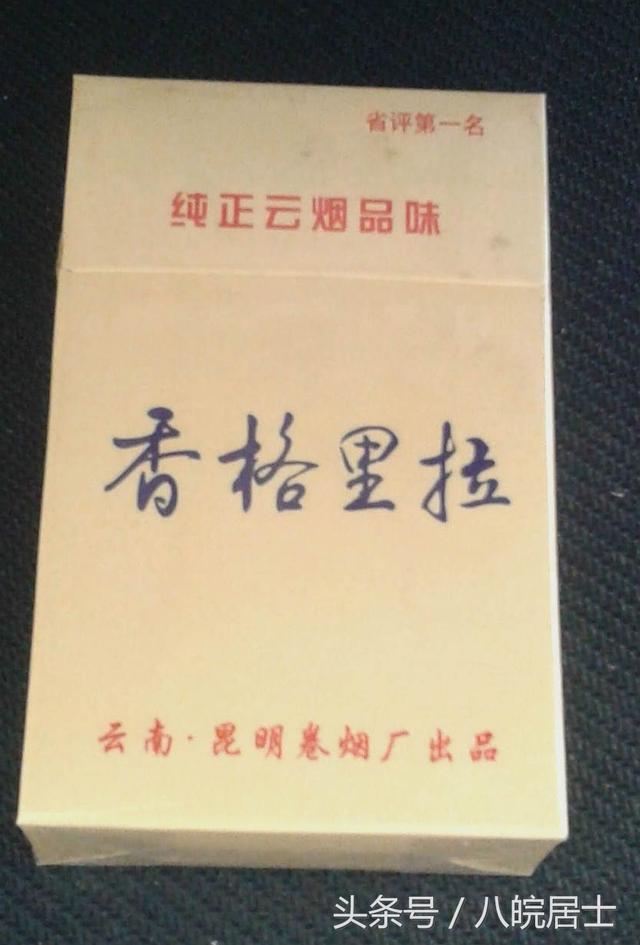 省评第一名
纯正云烟品味
香格里拉
云南·昆明卷烟厂出品
头条号／八皖居士